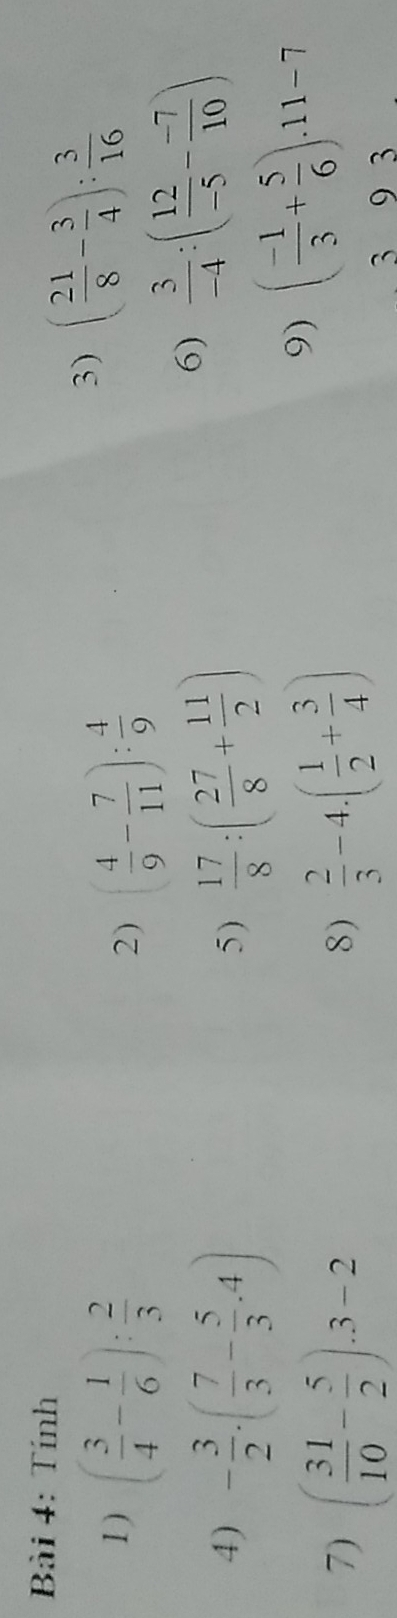 Bài 4: Tính
1) (3/4 - 1/6) : 2/3    2) (4/9 - 7/11) : 4/9    3) (21/8 - 3/4) : 3/16
4) -3/2 . (7/3 - 5/3 . 4)    5) 17/8 : (27/8 + 11/2)    6) 3/-4 : (12/-5 - -7/10)
7) (31/10 - 5/2) . 3 - 2    8) 2/3 - 4 . (1/2 + 3/4)    9) (-1/3 + 5/6) . 11 - 7
3 9 3